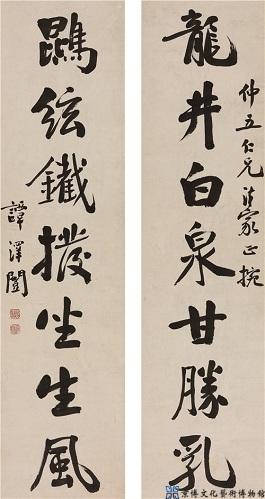 龍井白泉甘勝乳
仲五仁兄法家正腕
鵾絃鐵撥坐生風
譚澤闓
京博文化藝術博物館